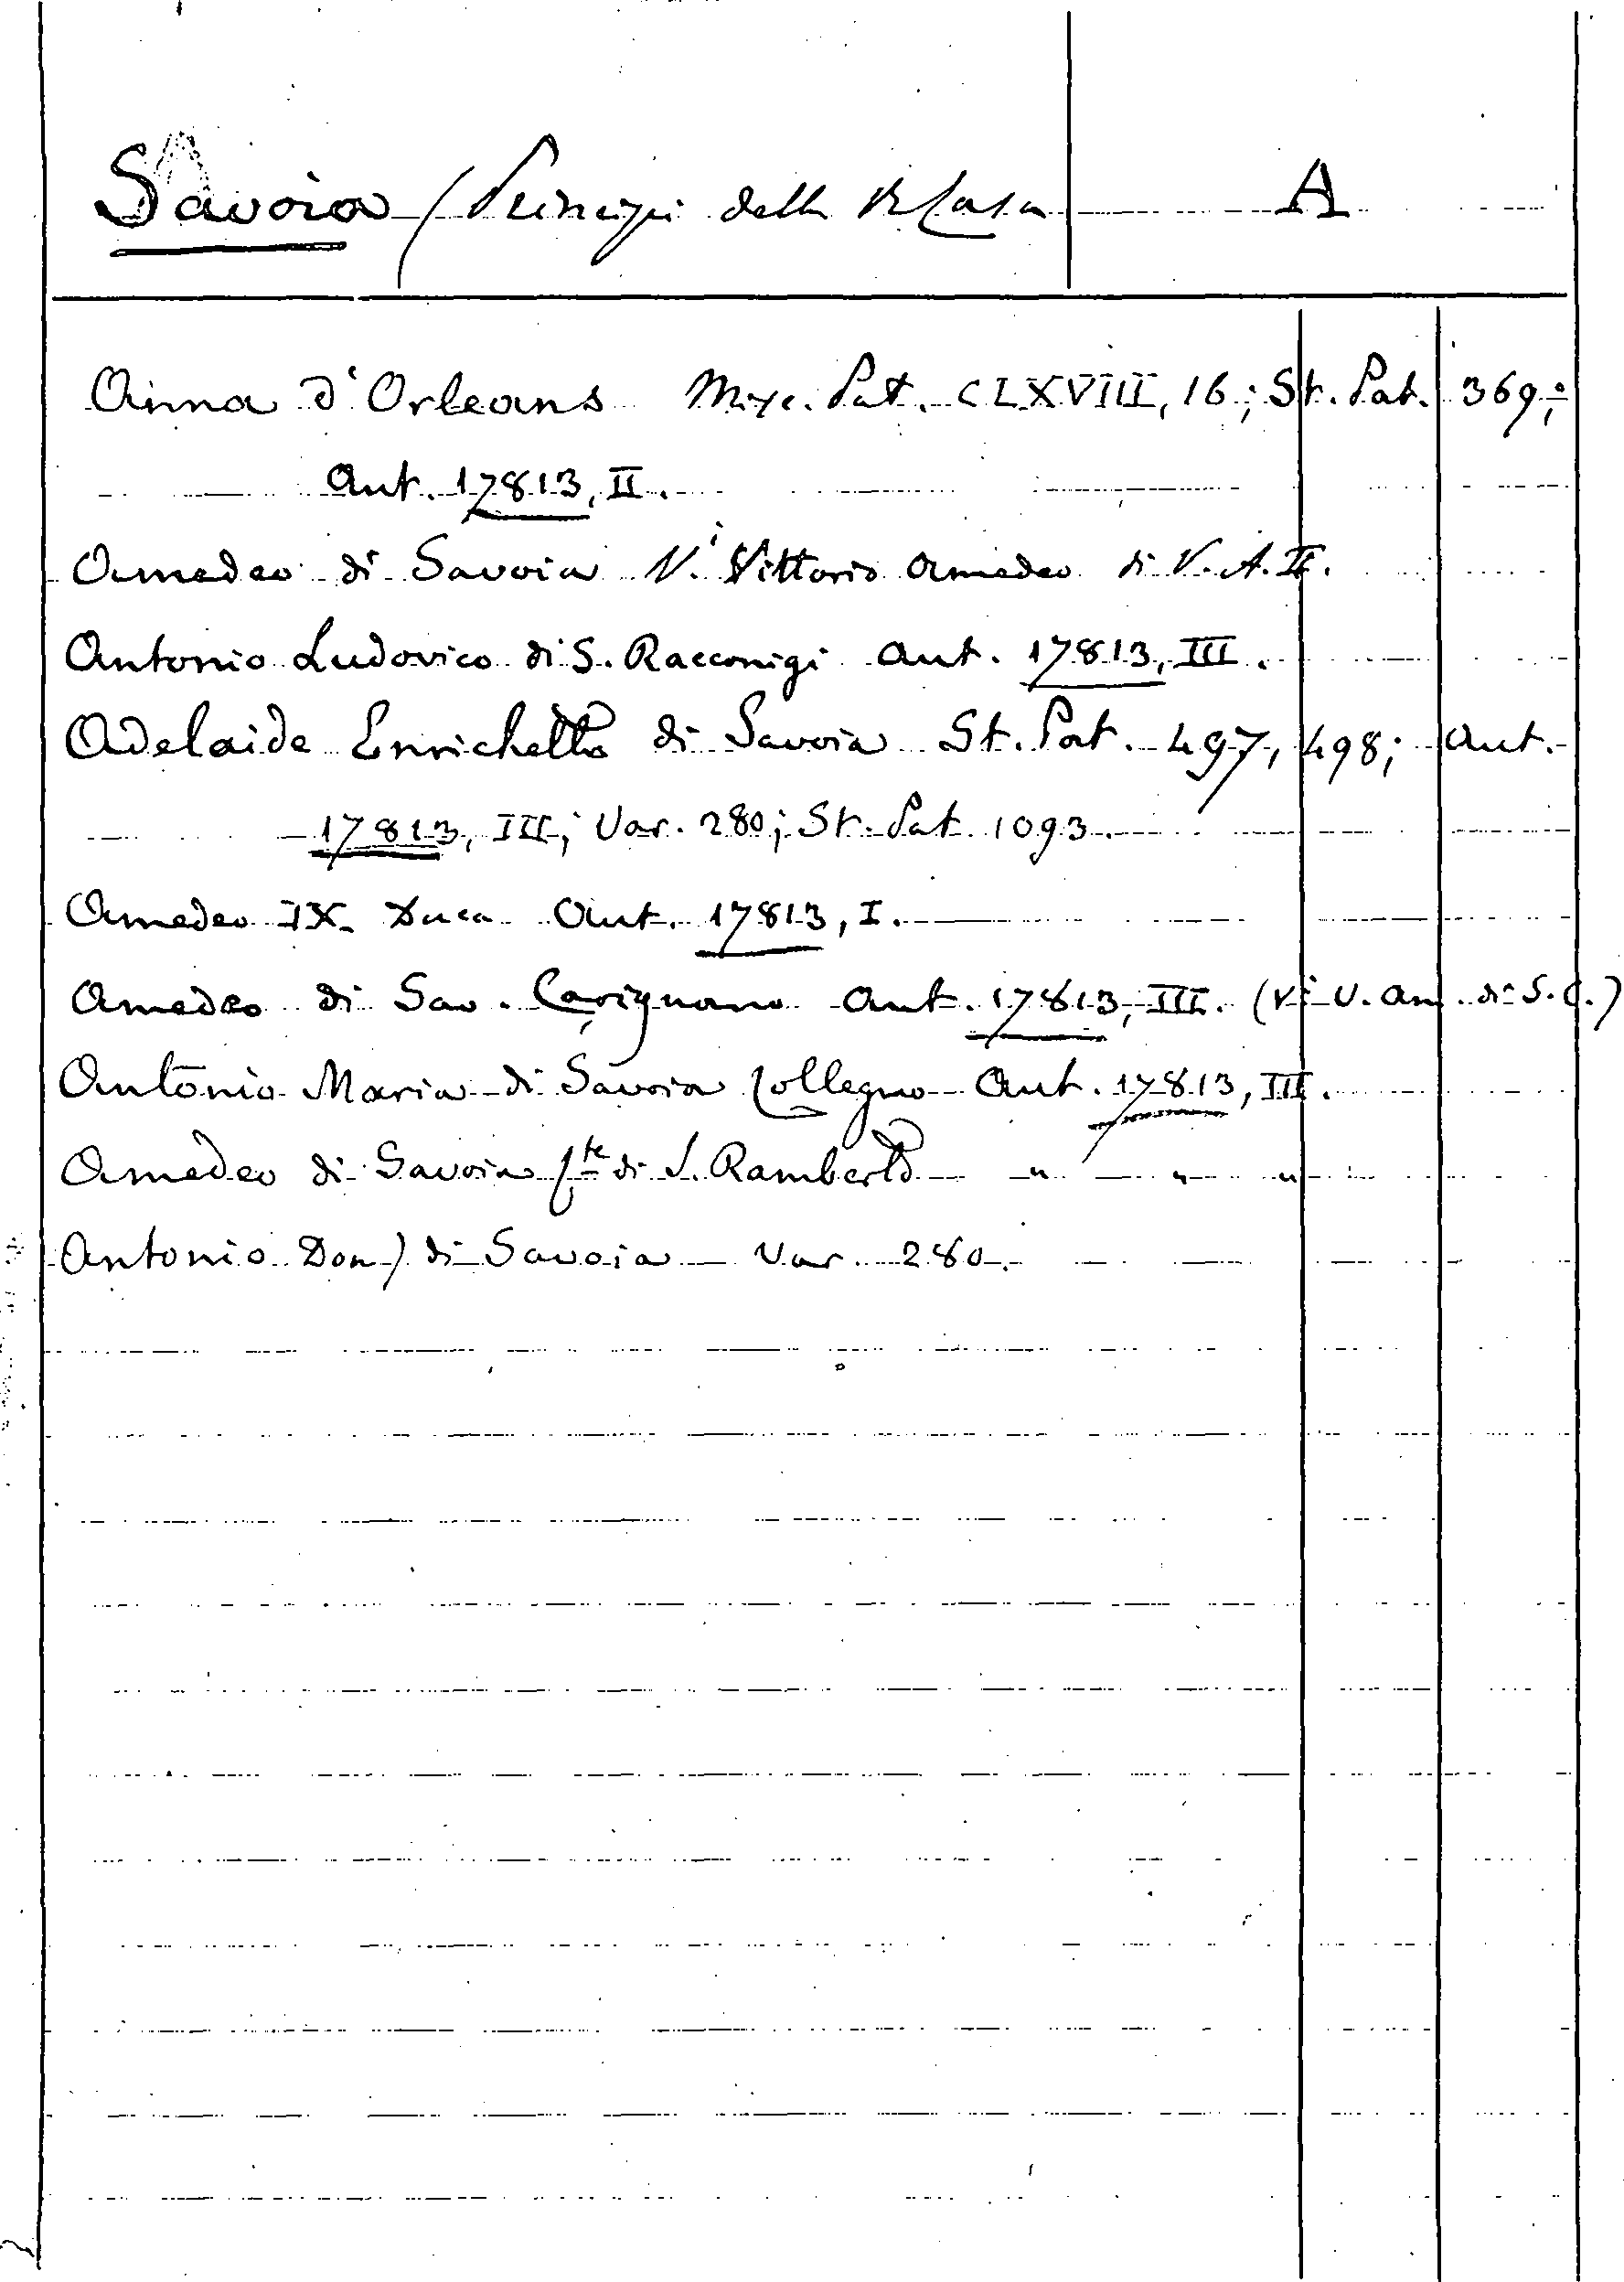 Savoia (Principi della R. Casa A
Anna d'Orleans Misc. Pat. CLXVIII, 16; St. Pat. 369;
Aut. 17813, II.
Amedeo di Savoia V. Vittorio Amedeo di V. A. II.
Antonio Ludovico di S. Racconigi Aut. 17813, III.
Adelaide Enrichetta di Savoia St. Pat. 497, 498; Aut.
17813, III; Var. 280; St. Pat. 1093.
Amedeo IX Duca Aut. 17813, I.
Amedeo di Sav. Carignano Aut. 17813, III. (Vi V. Am. di S. C.)
Antonio Maria di Savoia Collegno Aut. 17813, III.
Amedeo di Savoia Cte di S. Ramberto " " "
Antonio Don) di Savoia Var. 280.